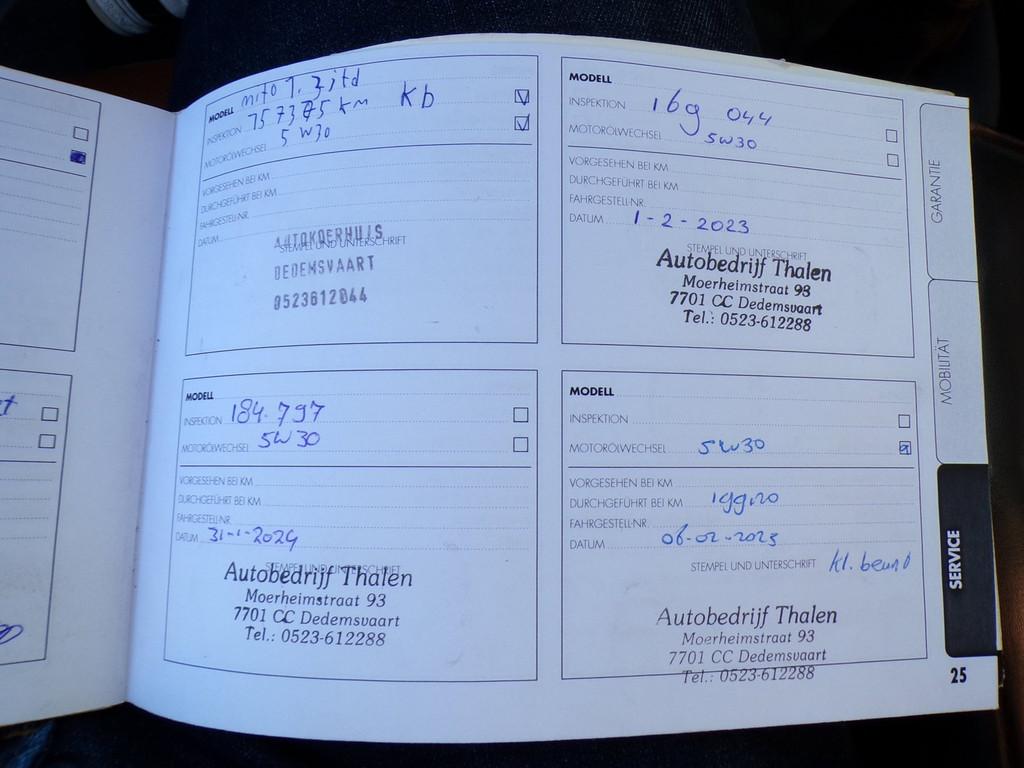 MODELL mito 1.3 jtd
INSPEKTION 157375 km kb
MOTORÖLWECHSEL 5W30
VORGESEHEN BEI KM
DURCHGEFÜHRT BEI KM
FAHRGESTELL-NR.
DATUM
STEMPEL UND UNTERSCHRIFT
AUTOKOERHUIS
DEDEMSVAART
0523612044
MODELL
INSPEKTION 169 044
MOTORÖLWECHSEL 5W30
VORGESEHEN BEI KM
DURCHGEFÜHRT BEI KM
FAHRGESTELL-NR.
DATUM 1-2-2023
STEMPEL UND UNTERSCHRIFT
Autobedrijf Thalen
Moerheimstraat 93
7701 CC Dedemsvaart
Tel.: 0523-612288
MODELL
INSPEKTION 184.797
MOTORÖLWECHSEL 5W30
VORGESEHEN BEI KM
DURCHGEFÜHRT BEI KM
FAHRGESTELL-NR.
DATUM 31-1-2024
STEMPEL UND UNTERSCHRIFT
Autobedrijf Thalen
Moerheimstraat 93
7701 CC Dedemsvaart
Tel.: 0523-612288
MODELL
INSPEKTION
MOTORÖLWECHSEL 5W30
VORGESEHEN BEI KM
DURCHGEFÜHRT BEI KM
FAHRGESTELL-NR.
DATUM 06-02-2025
STEMPEL UND UNTERSCHRIFT kl. beurt
Autobedrijf Thalen
Moerheimstraat 93
7701 CC Dedemsvaart
Tel.: 0523-612288
GARANTIE
MOBILITÄT
SERVICE
25